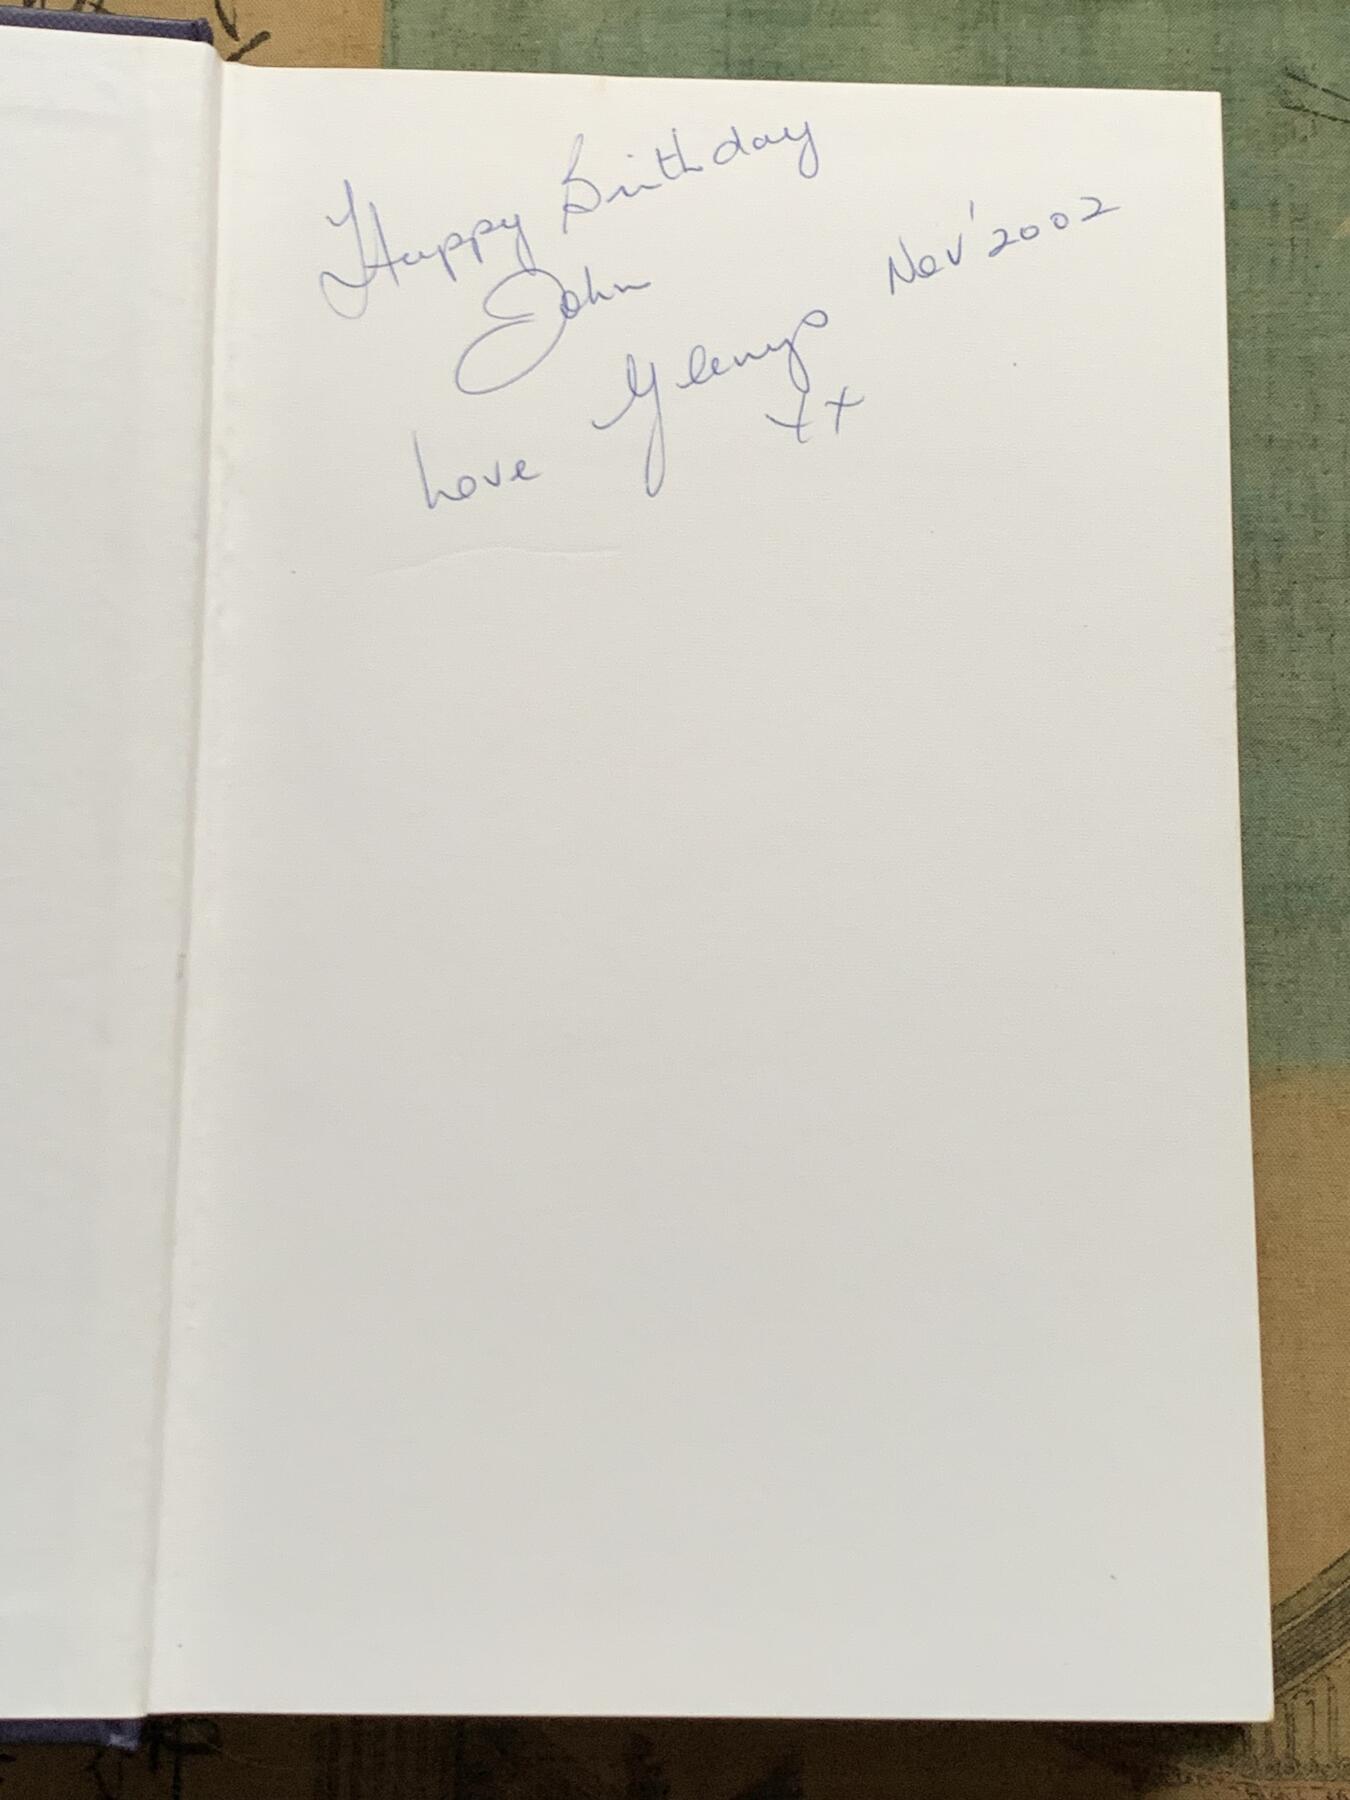 Happy Birthday
John
Nov' 2002
Love Glenys
xx